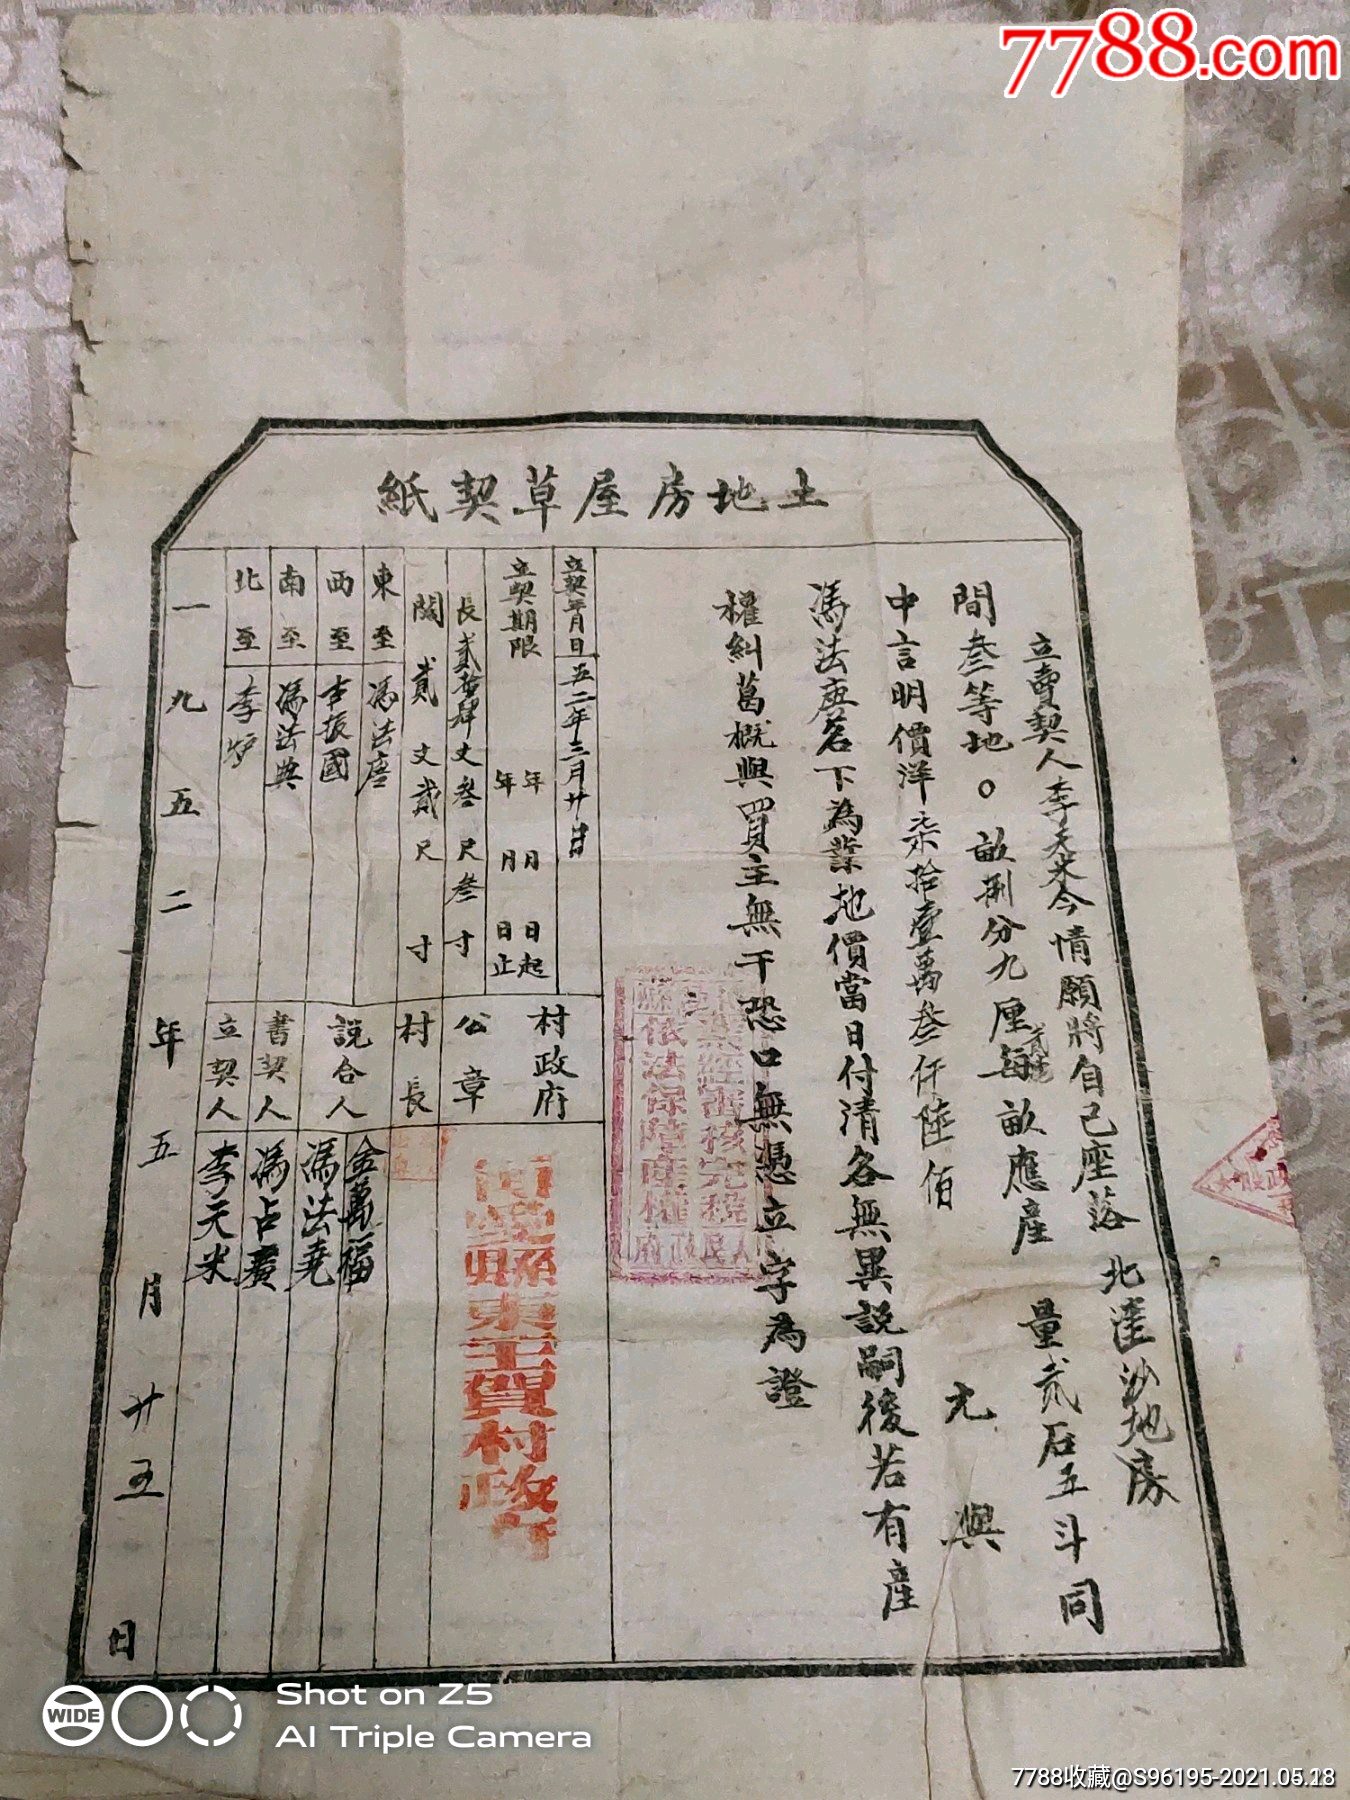 7788.com
土地房屋草契紙
立賣契人李天米今情願將自己座落北窪沙地房
間叁等地〇畝捌分九厘每畝應産量貳石五斗同
中言明價洋柒拾壹萬叁仟陸佰元與
馮法唐名下為業地價當日付清各無異説嗣後若有産
權糾葛概與買主無干恐口無憑立字為證
立契年月日五二年三月廿日
立契期限
年月日起
年月日止
長貳拾肆丈叁尺叁寸
闊貳丈貳尺寸
東至馮法唐
西至李振國
南至馮法典
北至李
村政府
公章
村長
説合人
金萬福
馮法堯
書契人馮占廣
立契人李天米
縣東王賀村政府
業經審核完稅
依法保障産權
人民政府
一九五二年五月廿五日
WIDE
Shot on Z5
AI Triple Camera
7788收藏@S96195-2021.05.18